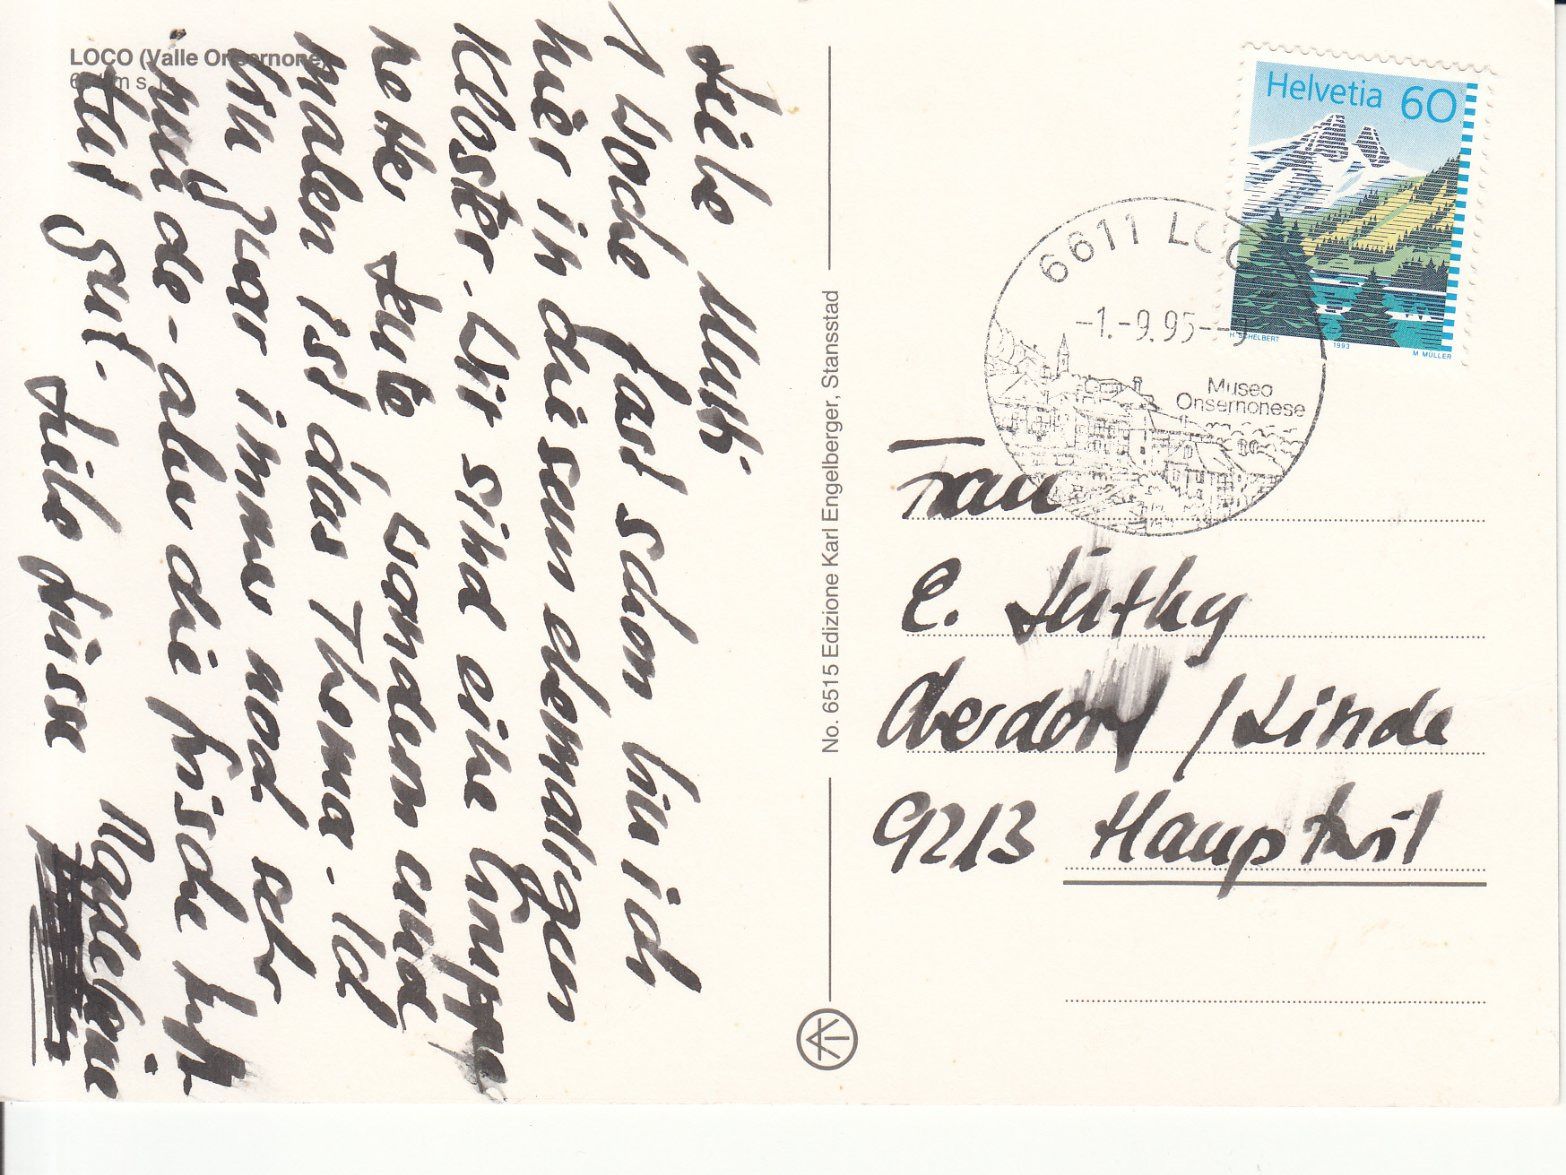 LOCO (Valle Onsernone)
m s.
Liebe Mutti
1 Woche fast schon bin ich
hier in diesem ehemaligen
Kloster. Wir sind eine Gruppe
nette Leute. Wandern und
malen ist das Thema. Ich
bin zwar immer noch sehr
müde - aber die frische Luft
tut gut. Liebe Grüsse
Helvetia 60
H. SCHELBERT 1993 M. MÜLLER
6611 LOCO
-1.-9.95--9
Museo
Onsernonese
Frau
E. Lüthy
Oberdorf / Linde
9213 Hauptwil
No. 6515 Edizione Karl Engelberger, Stansstad